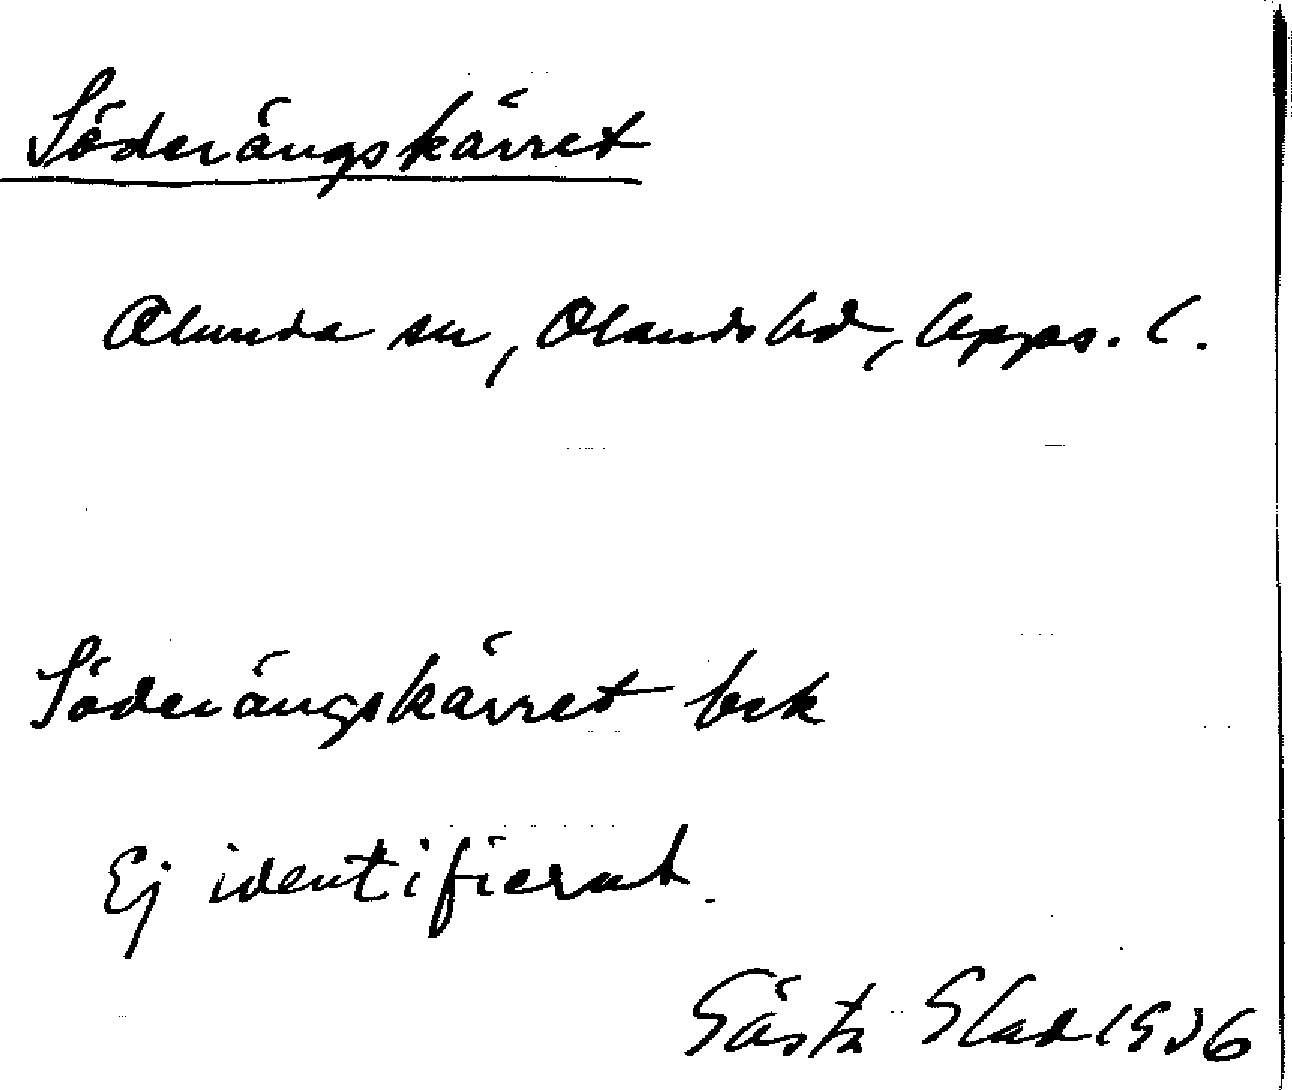 Söderängskärret
Alunda sn, Olands hd, Upps. l.
Söderängskärret bek
Ej identifierat.
Gösta Elad 1936